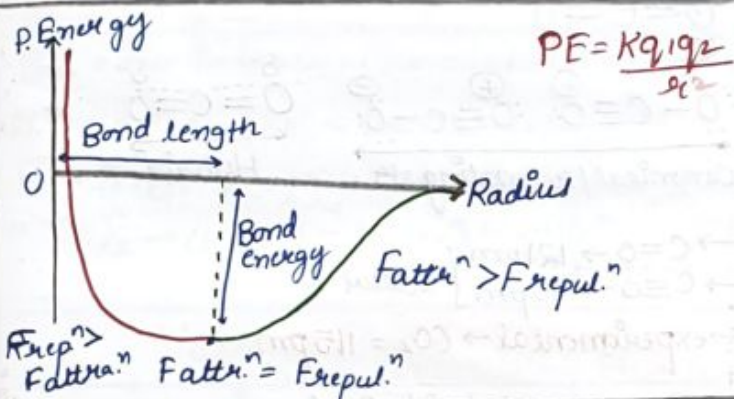 P.Energy
PE = Kq1q2
r²
Bond length
0
Radius
Bond
energy
Fattrⁿ > Frepul.ⁿ
Frepⁿ >
Fattra.ⁿ
Fattr.ⁿ = Frepul.ⁿ